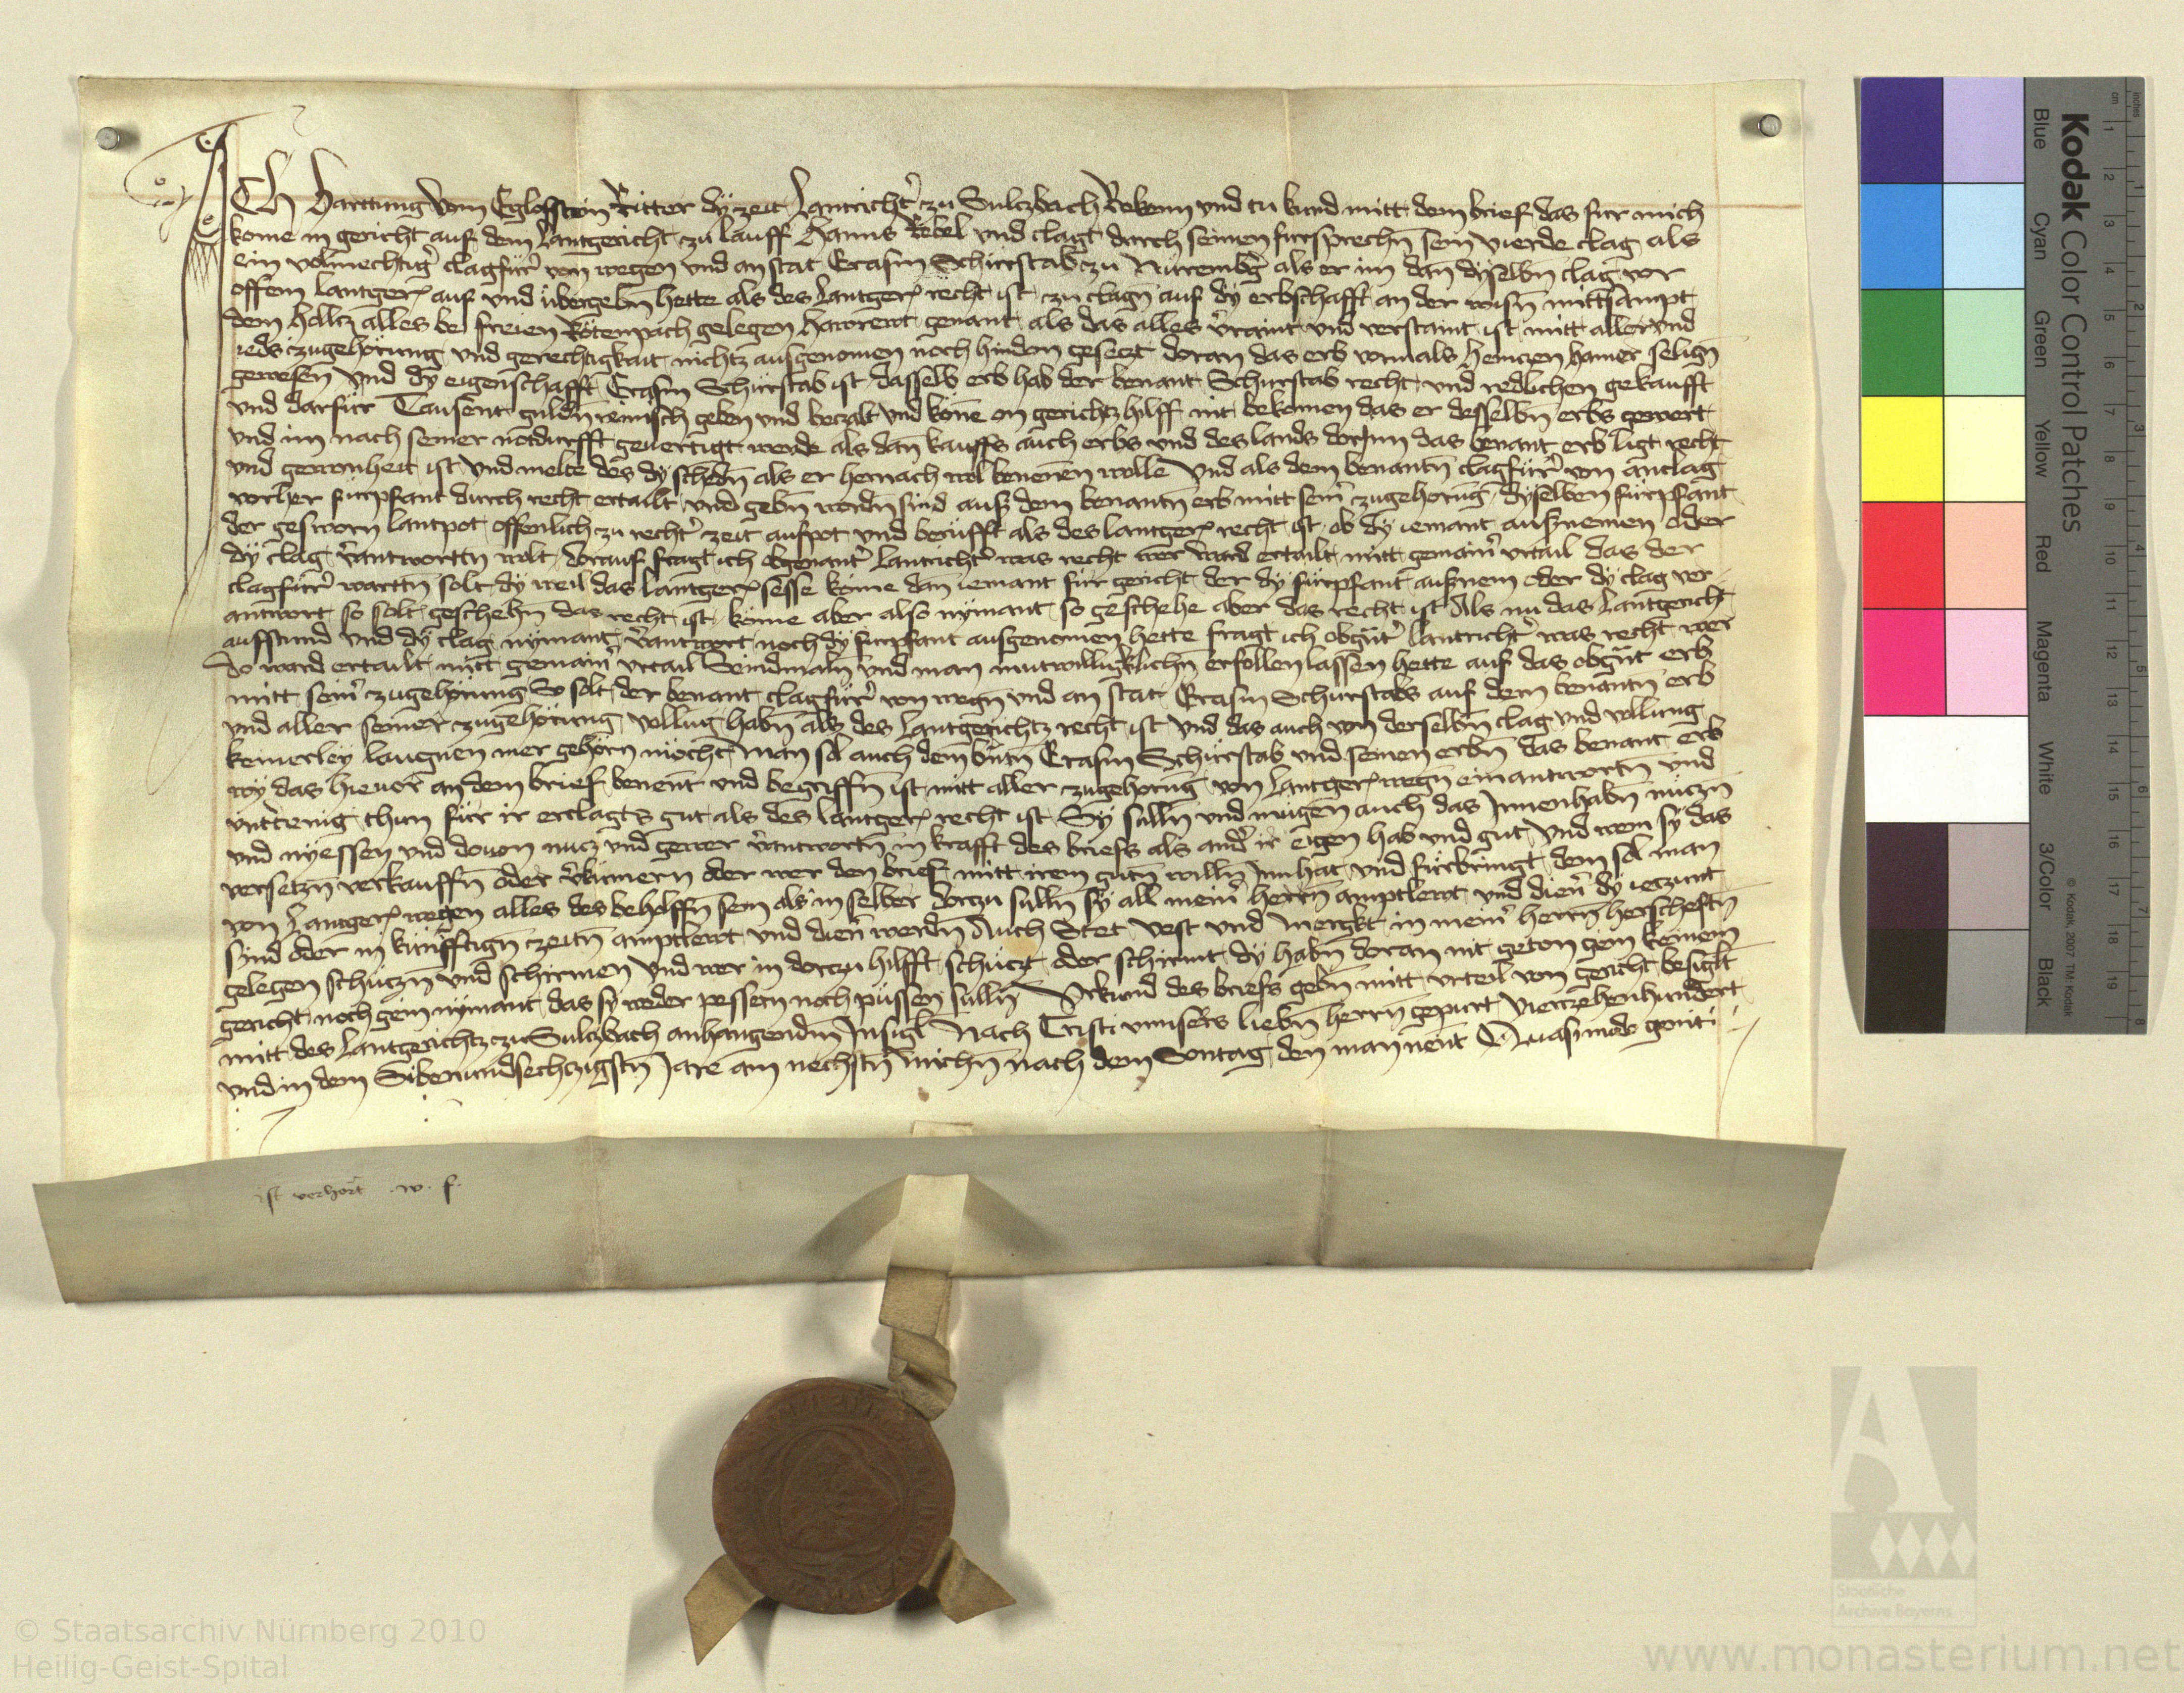 ICh Harttung vom Eglofstein Ritter dÿ zeit Lantricht̉ zu Sulczbach Bekenn und tu kund mitt dem brief das fur mich
kome in gericht auf dem Lantgericht zu lauff Hanns Rebel und clagt durch seinen fursprechn̄ sein vierde clag als
ein volmechtig̉ clagfür̉ von wegen und an stat Erasm Schürstab zu Nürembg̉ als er im dan̄ dÿselbn̄ clag vor
offem lantger auf und übergebn̄ hette als des Lantger recht ist zu clagn̄ auf dÿ erbschafft an der wisn̄ mittsampt
dem holtz alles bei freien Rötenpach gelegen genant als das alles v̉raint und verstaint ist mitt aller und
ieds zugehörung und gerechtigkait nichtz ausgenomen noch hindan gesetzt doran das erb vormals heinczen hamer selign̄
gewesen und dÿ eigenschafft Erasm Schürstab ist dasselb erb hab der benant Schurstab recht und redlichen gekaufft
und darfür Tausent guldn̄ reinisch geben und beczalt und köne on gerichtz hilff nit bekomen das er desselbn̄ erbs gewert
und im nach seiner notdurfft geuertigt werde als dan̄ kauffs auch erbs und des lands dorJnn das benant erb ligt recht
und gewonheit ist und melte des dÿ schedn̄ als er hernach wol benennen wolle Und als dem benantn̄ clagfür̉ von anclag
vorher fürpfant durch recht ertailt und gebn̄ wordn̄ sind auf dem benantn̄ erb mitt sein̉ zugehorūg dÿselben fürpfant
der gesworn lantpot offenlich zu recht̉ zeit aufpot und berüfft als des lantger recht ist ob dÿ iemant ausznemen oder
dÿ clag v̉antworttn̄ wolt dorauf fragt ich obgenant̉ Lantricht̉ was recht wer ward ertailt mitt gemain̉ urtail das der
clagfür̉ warttn̄ solt dÿ weil das lantger sesse köme dan iemant für gericht der dÿ fürpfant ausznem oder dÿ clag ver
antwort so solt geschehn̄ das recht ist köme aber also nÿmant so geschehe aber das recht ist Als nu das Lantgericht
aufstund und dÿ clag nÿmant v̉antwort noch dÿ furpfant ausgenomen hette fragt ich obgn̄t̉ lantricht̉ was recht wer
do ward ertailt mitt gemain̉ urtail Seindmaln̄ und man mutwilligklichn̄ erfollen lassen hette auf das obgn̄t erb
mitt sein̉ zugehörung So solt der benant clagfür̉ von wegn̄ und an stat Erasm Schurstabs auf dem benantn̄ erb
und aller seiner zugehörung vollūg habn̄ als des Lantgerichtz recht ist und das auch von derselbn̄ clag und vollung
keinerleÿ laugnen mer gehörn möcht man sol auch dem bn̄tn̄ Erasm Schürstab und seinen erbn̄ das benant erb
wÿ das hieuor an dem brief benent und begriffn̄ ist mitt aller zugehorūg von Lantger wegn̄ einantworttn̄ und
untt̉tenig thun für ir erclagts gut als des lantger recht ist Sÿ sulln̄ und mügen auch das Jnnenhabn̄ nuczn̄
und nÿessen und dovon nucz und gewer v̉antworttn̄ in krafft des briefs als and̉ ir eigen hab und gut Und wem sÿ das
versetzn̄ verkauffn̄ oder v̉kümern̄ oder wer den brief mitt irem gutn̄ willn̄ Jnnhat und fürbringt dem sol man
von Lantger wegen alles des beholffn̄ sein als in selber dorczu sulln̄ sÿ all mein̉ herrn̄ amptlewt und dien̉ dÿ ieczunt
sind oder in künfftign̄ zeitn̄ amptlewt und dien̉ werdn̄ Auch Stet vest und Merckt in mein̉ herrn̄ herscheftn̄
gelegen schüczn̄ und schirmen und wer in dorczu hilfft schüczt oder schirmt dÿ habn̄ doran nit geton gein keinem
gericht noch gein nÿmant das sÿ weder pessern noch püssen sulln̄ Urkund des briefs gebn̄ mitt urteil von gericht besiglt
mitt des Lantgerichtz zu Sulczbach anhangendm̄ Jnsigl Nach Cristi unnsers liebn̄ herrn̄ gepurt vierczehenhundert
und in dem Sibenundsechczigstn̄ Jare am nechstn̄ micħn̄ nach dem Sontag den man nent Quasimodo geniti
ist verhort .w. f.
Kodak Color Control Patches
Blue Cyan Green Yellow Red Magenta White 3/Color Black
© Kodak, 2007 TM: Kodak
inches 1 2 3 4 5 6 7 8
cm 1 2 3 4 5 6 7 8 9 10 11 12 13 14 15 16 17 18 19
A
Staatliche
Archive Bayerns
© Staatsarchiv Nürnberg 2010
Heilig-Geist-Spital
www.monasterium.net